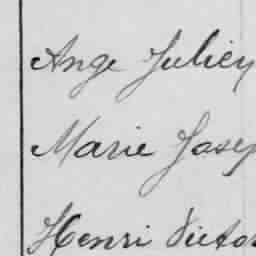 Ange Julien
Marie Josep
Henri Victor